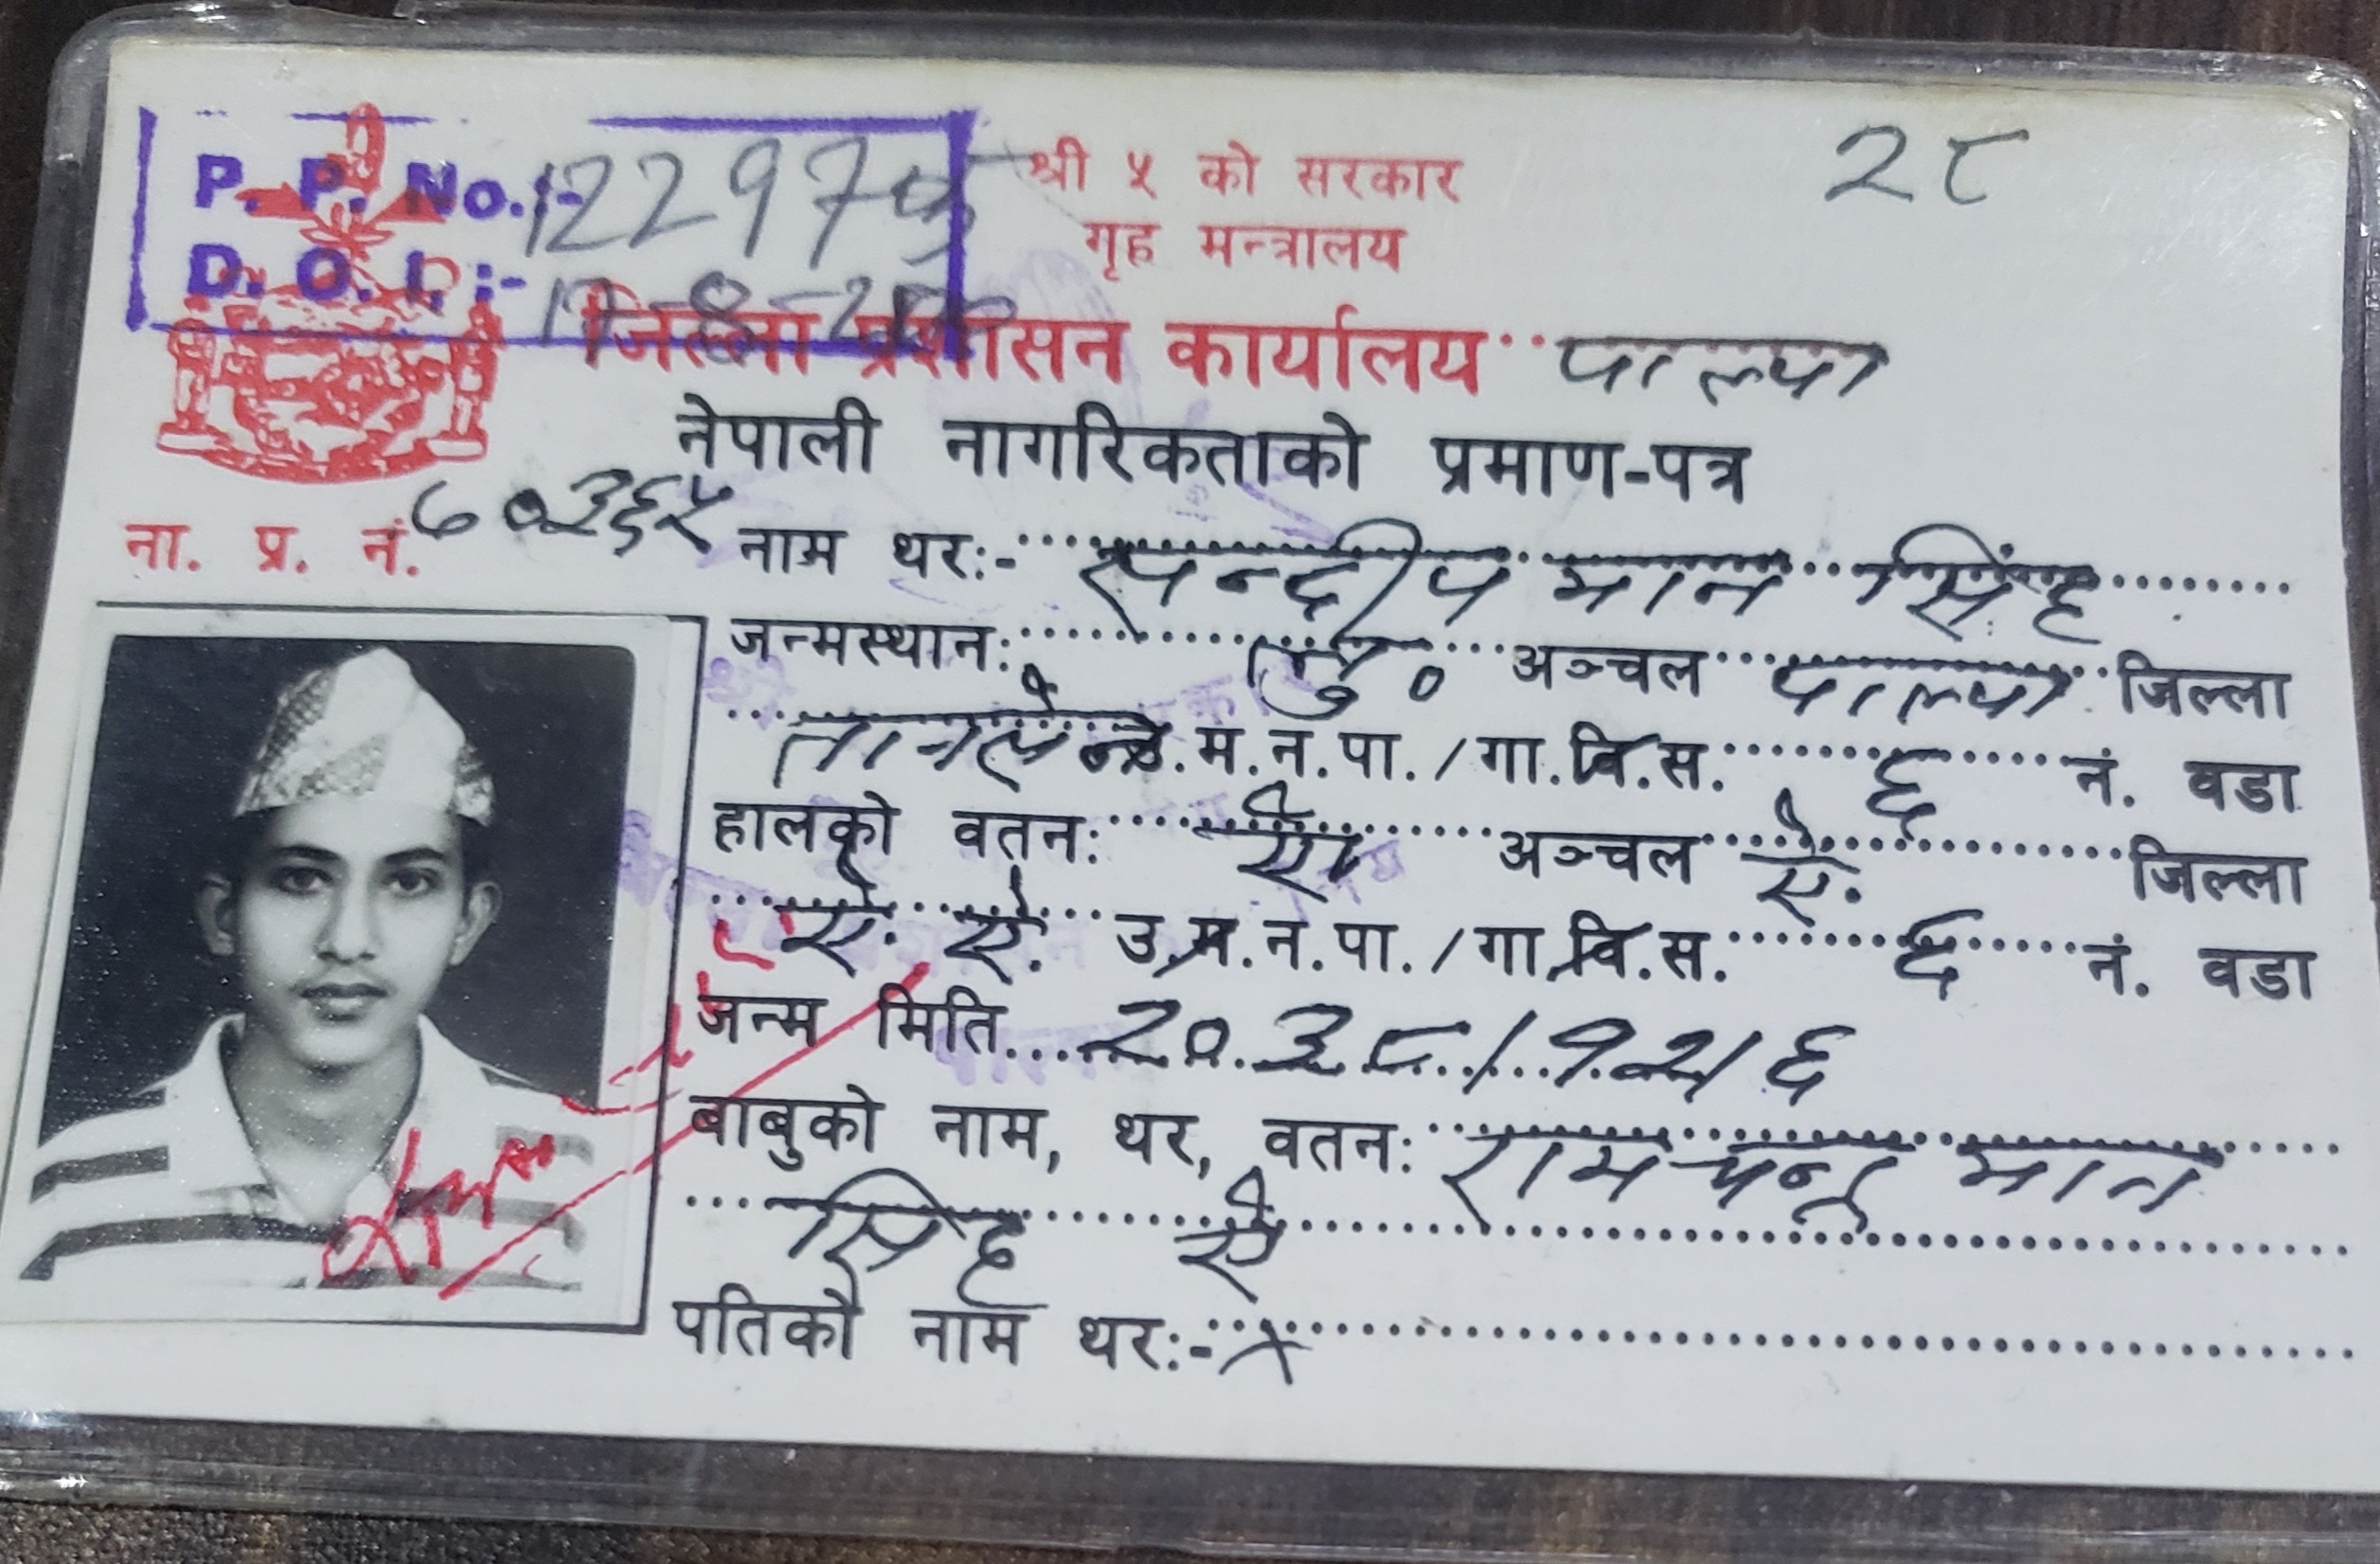 २८
P. P. No. :- 
D. O. I. :- 
श्री ५ को सरकार
गृह मन्त्रालय
जिल्ला प्रशासन कार्यालय पाल्पा
नेपाली नागरिकताको प्रमाण-पत्र
ना. प्र. नं.
नाम थर:- सन्दीप मान सिंह
जन्मस्थान: लु० अञ्चल पाल्पा जिल्ला
तानसेन उ.म.न.पा./गा.वि.स. ६ नं. वडा
हालको वतन: ऐ अञ्चल ऐ. जिल्ला
ऐ. ऐ. उ.म.न.पा./गा.वि.स. ६ नं. वडा
जन्म मिति
बाबुको नाम, थर, वतन: रामचन्द्र मान
सिंह ऐ
पतिको नाम थर:- x